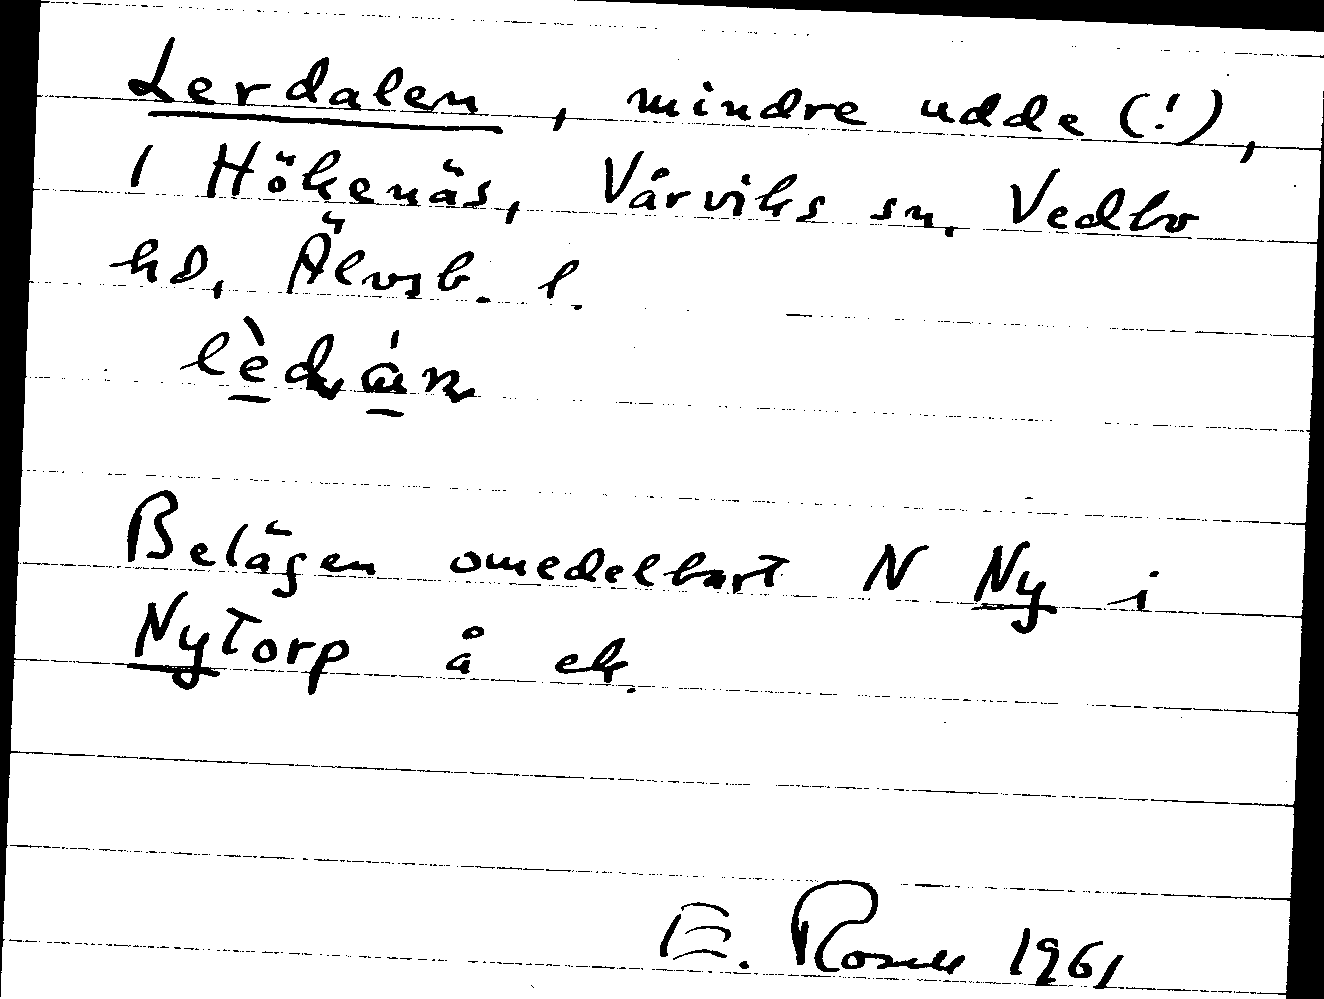 Lerdalen, mindre udde (!),
i Hökenäs, Vårviks sn, Vedbo
hd, Älvsb. l.
Belägen omedelbart N Ny i
Nytorp å ek.
E. Rosell 1961